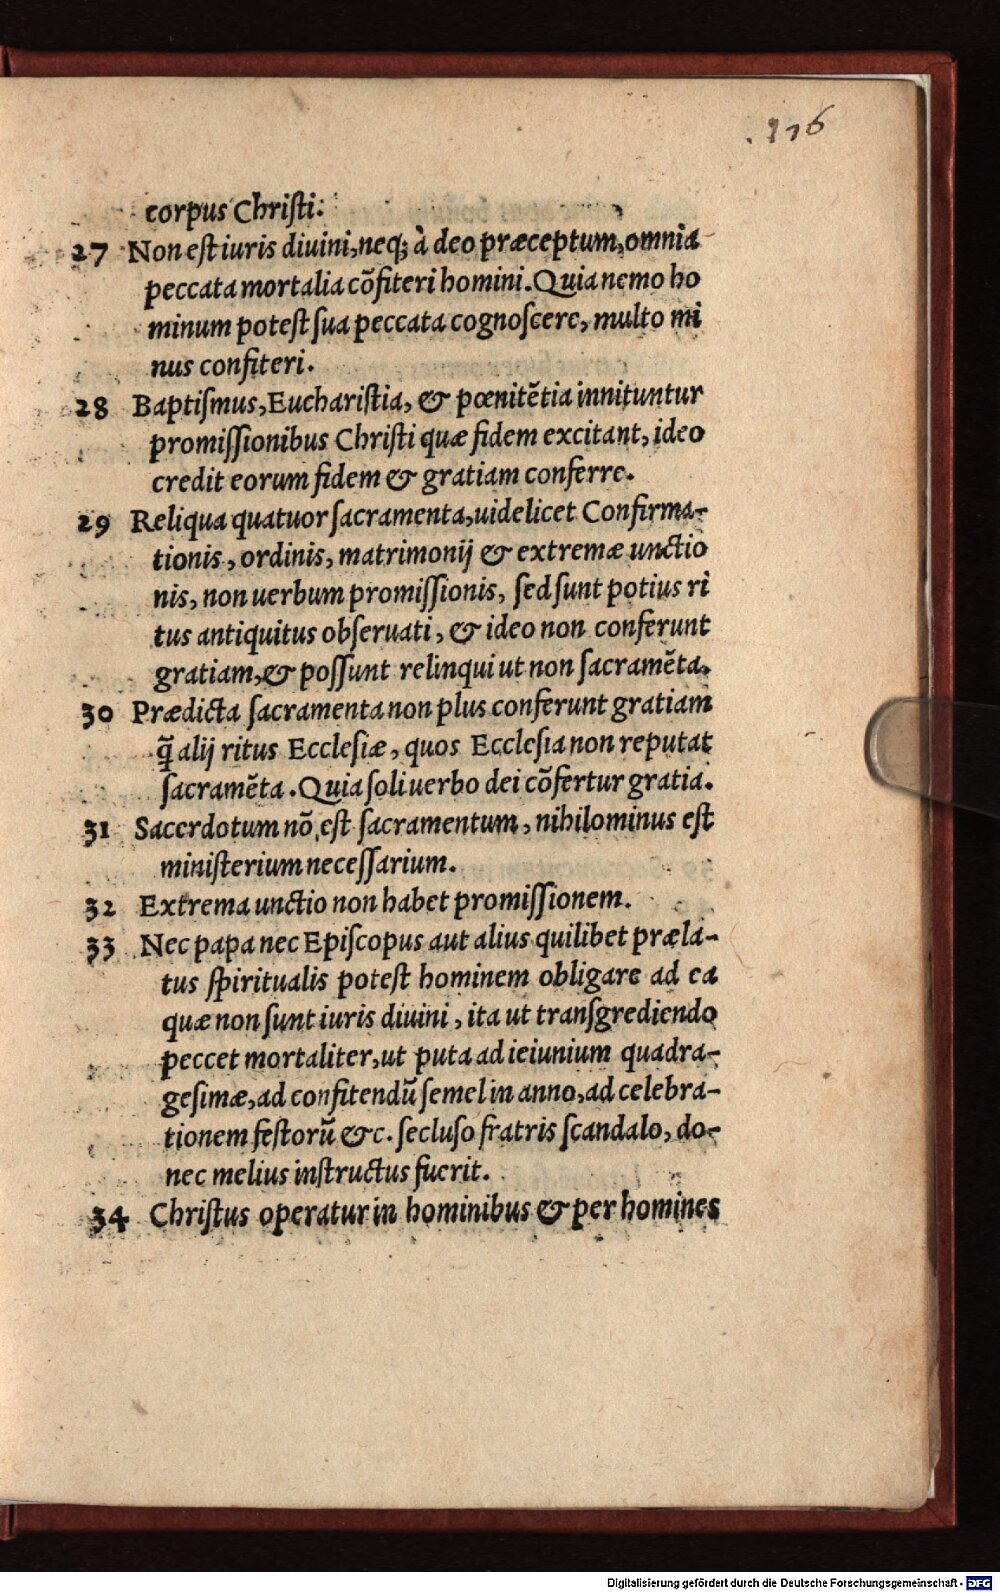 .116
corpus Chriſti.
27 Non eſt iuris diuini, neq; à deo præceptum, omnia
peccata mortalia cõfiteri homini. Quia nemo ho
minum poteſt ſua peccata cognoſcere, multo mi
nus confiteri.
28 Baptiſmus, Euchariſtia, & pœnitẽtia innituntur
promiſſionibus Chriſti quæ fidem excitant, ideo
credit eorum fidem & gratiam conferre.
29 Reliqua quatuor ſacramenta, uidelicet Confirma-
tionis, ordinis, matrimonij & extremæ unctio
nis, non uerbum promiſſionis, ſed ſunt potius ri
tus antiquitus obſeruati, & ideo non conferunt
gratiam, & poſſunt relinqui ut non ſacramẽta.
30 Prædicta ſacramenta non plus conferunt gratiam
q̃ alij ritus Eccleſiæ, quos Eccleſia non reputat
ſacramẽta. Quia ſoli uerbo dei cõfertur gratia.
31 Sacerdotum nõ eſt ſacramentum, nihilominus eſt
miniſterium neceſſarium.
32 Extrema unctio non habet promiſſionem.
33 Nec papa nec Epiſcopus aut alius quilibet præla-
tus ſpiritualis poteſt hominem obligare ad ea
quæ non ſunt iuris diuini, ita ut tranſgrediendo
peccet mortaliter, ut puta ad ieiunium quadra-
geſimæ, ad confitendũ ſemel in anno, ad celebra-
tionem feſtorũ &c. ſecluſo fratris ſcandalo, do-
nec melius inſtructus fuerit.
34 Chriſtus operatur in hominibus & per homines
Digitalisierung gefördert durch die Deutsche Forschungsgemeinschaft - DFG